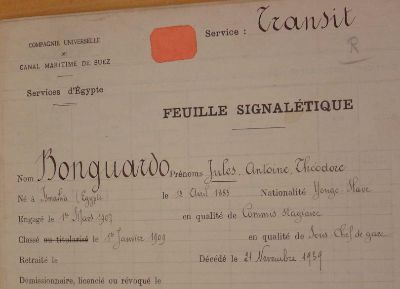 COMPAGNIE UNIVERSELLE
DU
CANAL MARITIME DE SUEZ
Services d'Égypte
Service : Transit
R
FEUILLE SIGNALÉTIQUE
Nom Bonguardo Prénoms Jules, Antoine, Théodore
Né à Ismaïlia Egypte le 13 Avril 1883 Nationalité Yougo-Slave
Engagé le 1er Mars 1907 en qualité de Commis stagiaire
Classé ou titularisé le 1er Janvier 1909 en qualité de Sous Chef de gare
Retraité le Décédé le 21 Novembre 1939
Démissionnaire, licencié ou révoqué le